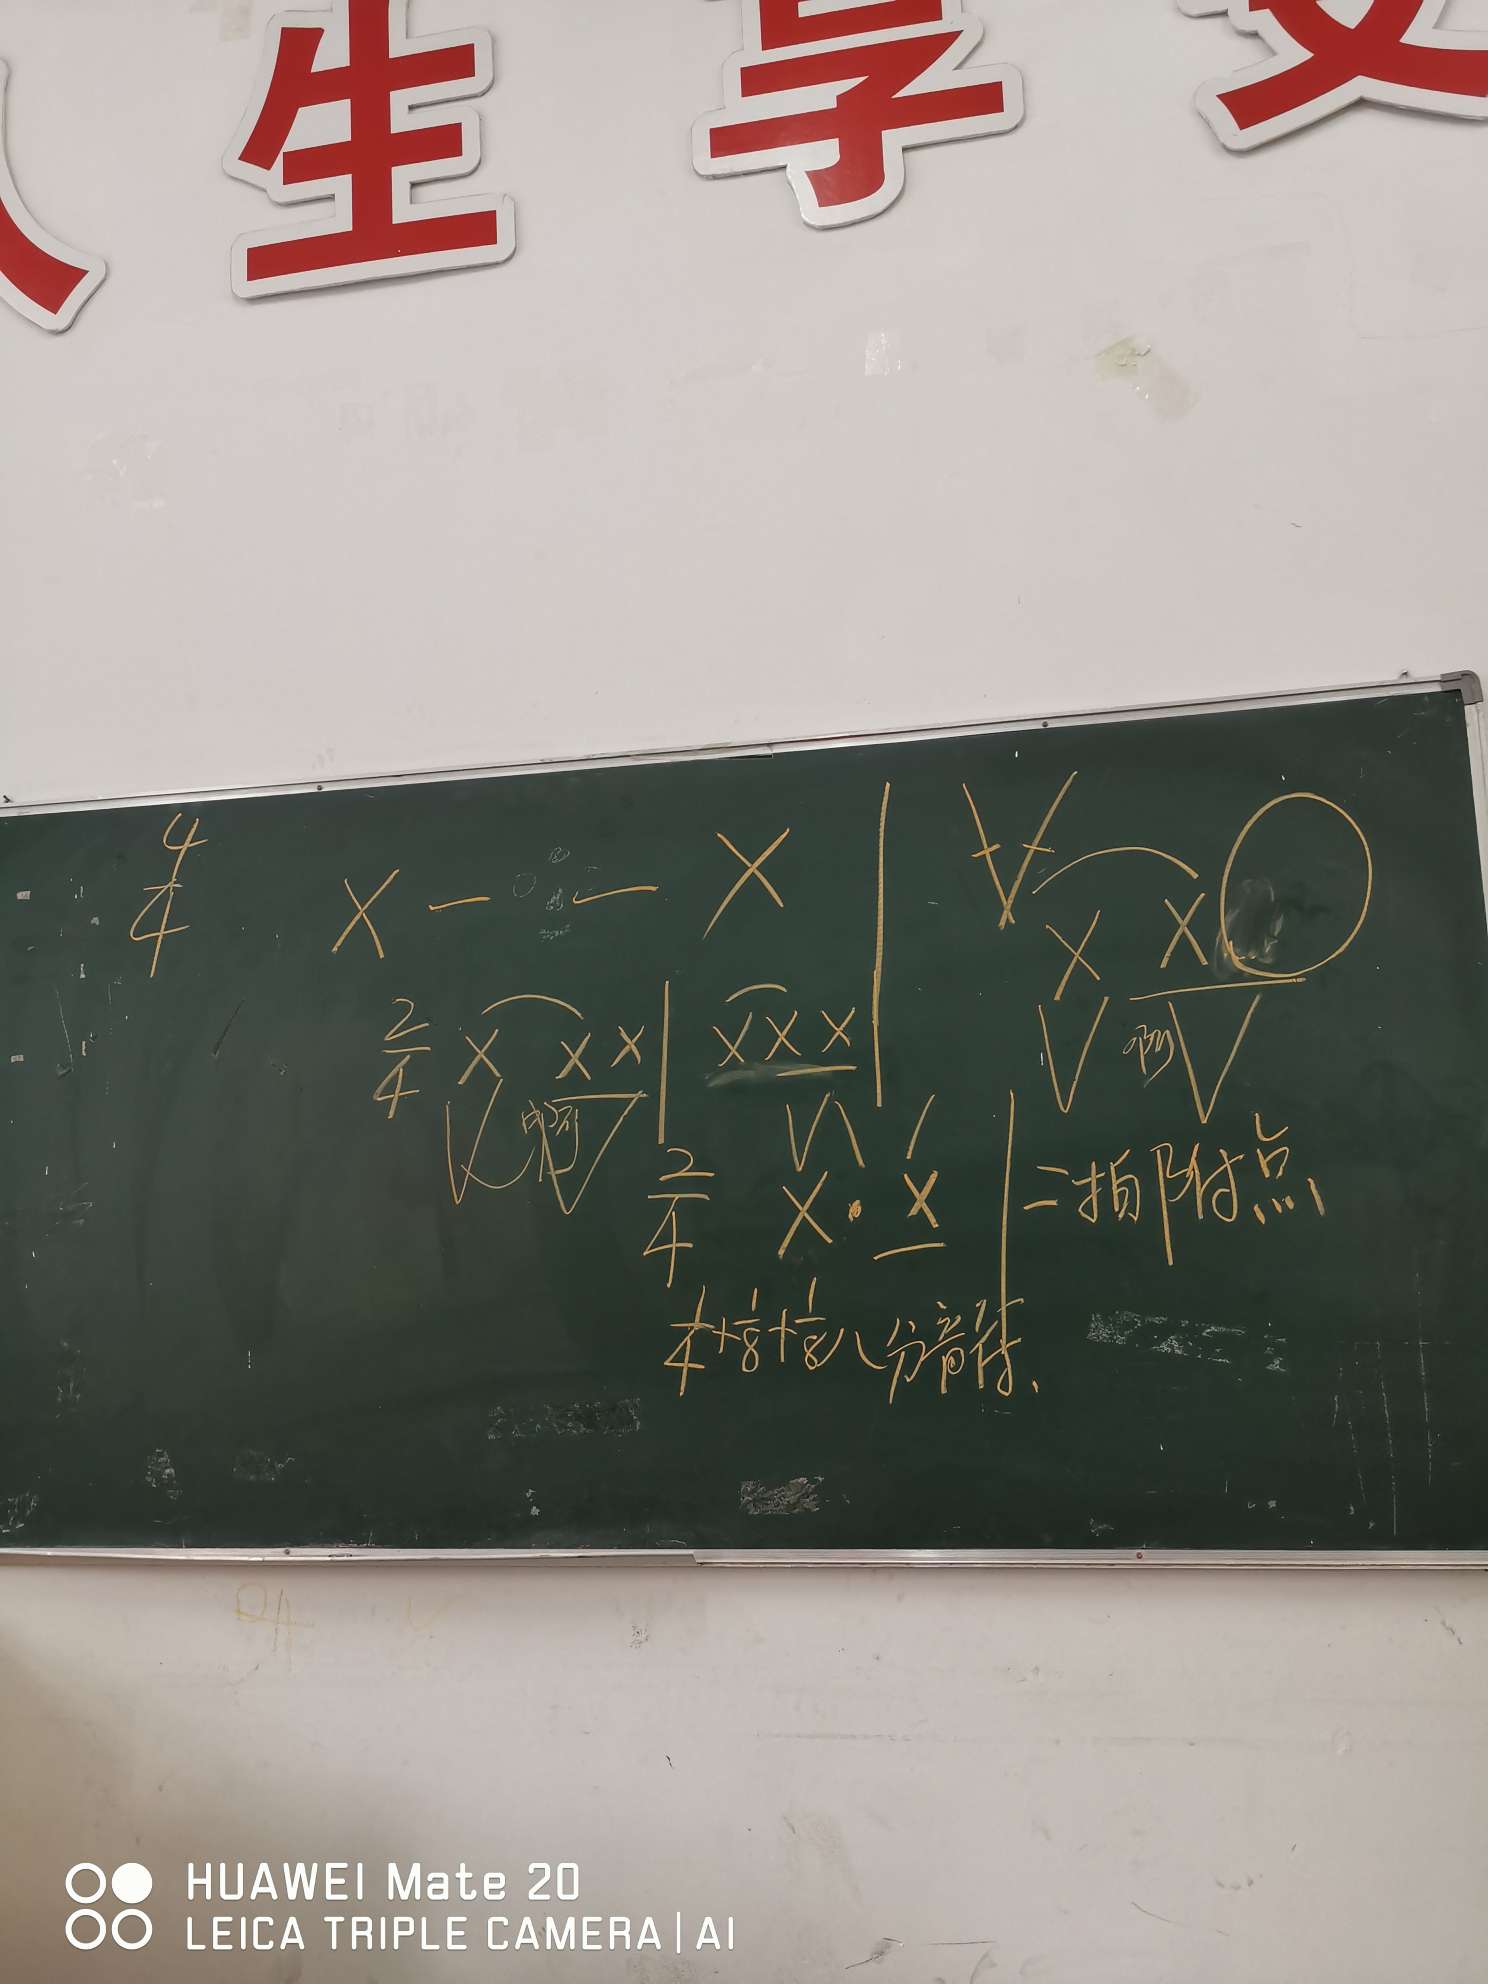 人生享受
4/4 X — — X | V X X
2/4 X X X | X X X
啊 啊
2/4 X · X | 二拍附点
1/4+1/8+1/8 八分音符、
HUAWEI Mate 20
LEICA TRIPLE CAMERA | AI